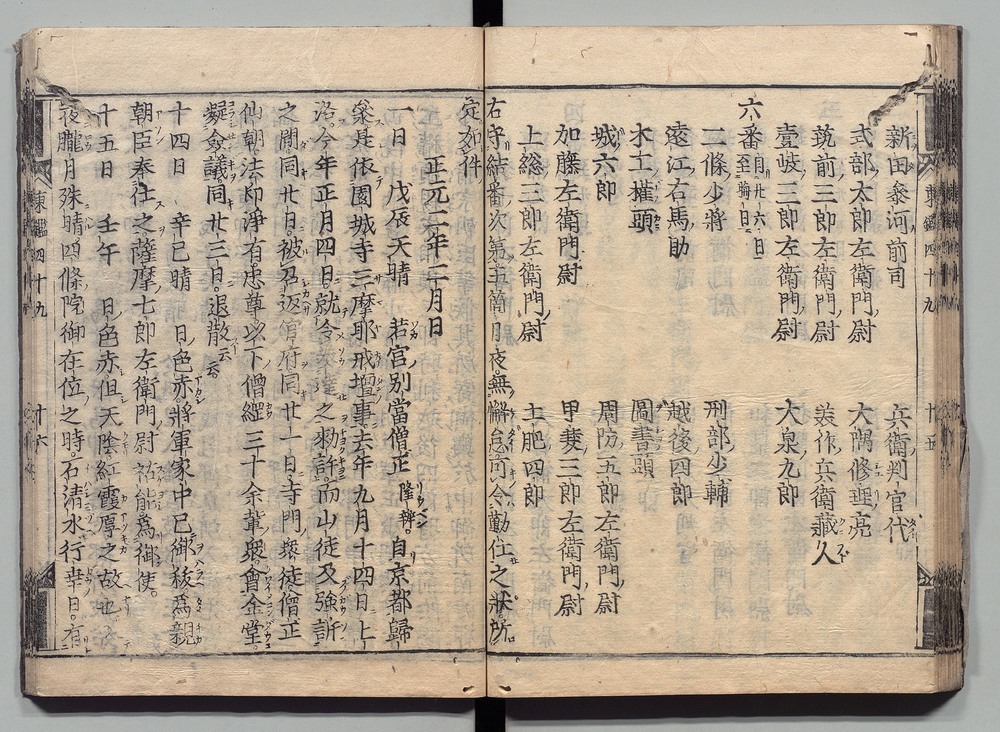 新田參河前司　兵衛判官代
式部太郎左衛門尉　大隅修理亮
筑前三郎左衛門尉　美作兵衛藏人
壹岐三郎左衛門尉　大泉九郎
六番自廿六日至晦日
二條少將　刑部少輔
遠江右馬助　越後四郎
木工權頭　圖書頭
城六郎　周防五郎左衛門尉
加藤左衛門尉　甲斐三郎左衛門尉
上総三郎左衛門尉　土肥四郎
右守結番次第五箇日夜無懈怠可令勤仕之狀所
定如件
正元二年二月日
一日　戊辰天晴　若宮別當僧正隆辨自京都歸
參是依園城寺三摩耶戒壇事去年九月十四日上
洛今年正月四日就令達之勅許而山徒及強訴
之間同廿日被召返官府同廿一日寺門衆徒僧正
仙朝法印淨有忠尊以下僧綱三十余輩衆會金堂
擬僉議同廿三日退散云云
十四日　辛巳晴　日色赤將軍家中已御祓爲親
朝臣奉仕之薩摩七郎左衛門尉祐能爲御使
十五日　壬午　日色赤但天陰紅霞厚之故也
夜朧月殊晴四條院御在位之時石清水行幸日有
東鑑四十九　十五
東鑑四十九　十六